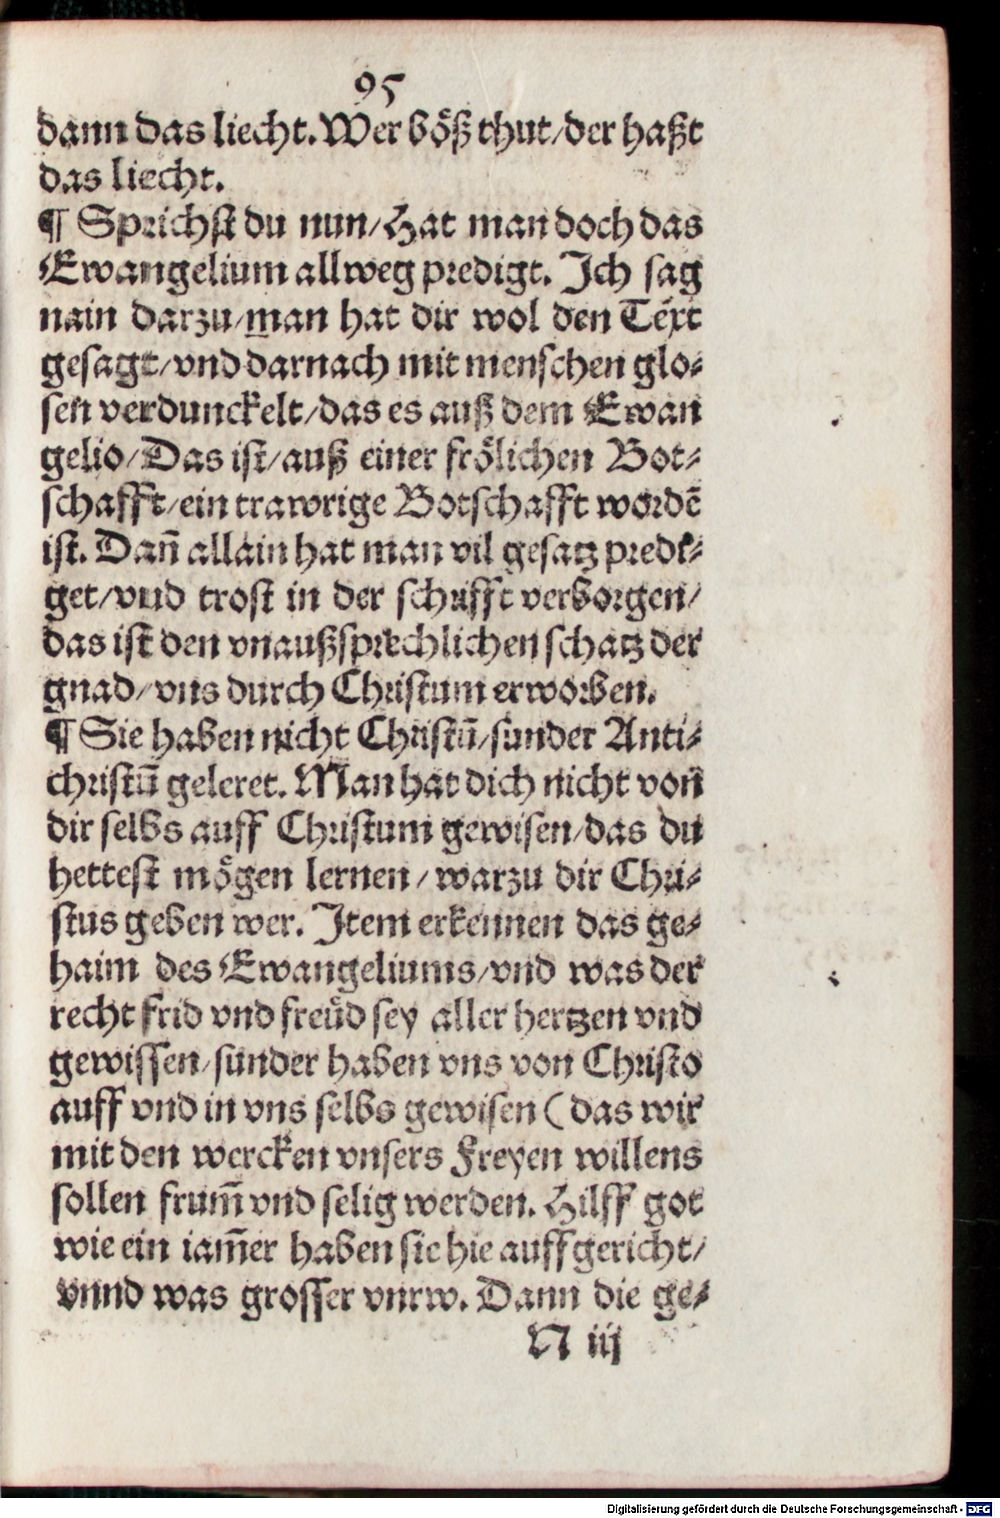 95
dann das liecht. Wer böß thut/der haßt
das liecht.
¶ Sprichst du nun/Hat man doch das
Ewangelium allweg predigt. Ich sag
nain darzu/man hat dir wol den Text
gesagt/vnd darnach mit menschen glo⸗
sen verdunckelt/das es auß dem Ewan
gelio/Das ist/auß einer frölichen Bot⸗
schafft/ein trawrige Botschafft wordē
ist. Dañ allain hat man vil gesatz predi⸗
get/vnd trost in der schrifft verborgen/
das ist den vnaußsprechlichen schatz der
gnad/vns durch Christum erworben.
¶ Sie haben nicht Christū/sunder Anti⸗
christū geleret. Man hat dich nicht von
dir selbs auff Christum gewisen/das du
hettest mögen lernen/warzu dir Chri⸗
stus geben wer. Item erkennen das ge⸗
haim des Ewangeliums/vnd was der
recht frid vnd freüd sey aller hertzen vnd
gewissen/sunder haben vns von Christo
auff vnd in vns selbs gewisen (das wir
mit den wercken vnsers Freyen willens
sollen frum̃ vnd selig werden. Hilff got
wie ein iam̃er haben sie hie auffgericht/
vnnd was grosser vnrw. Dann die ge⸗
N iij
Digitalisierung gefördert durch die Deutsche Forschungsgemeinschaft - DFG